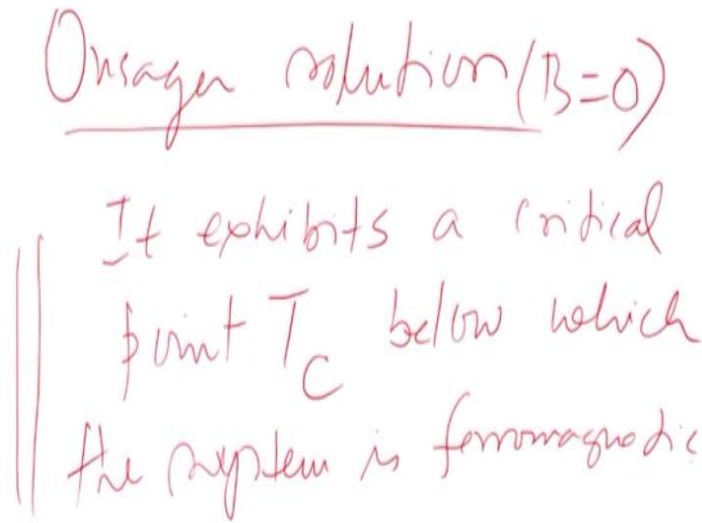 Onsager solution (B=0)
It exhibits a critical
point T_C below which
the system is ferromagnetic